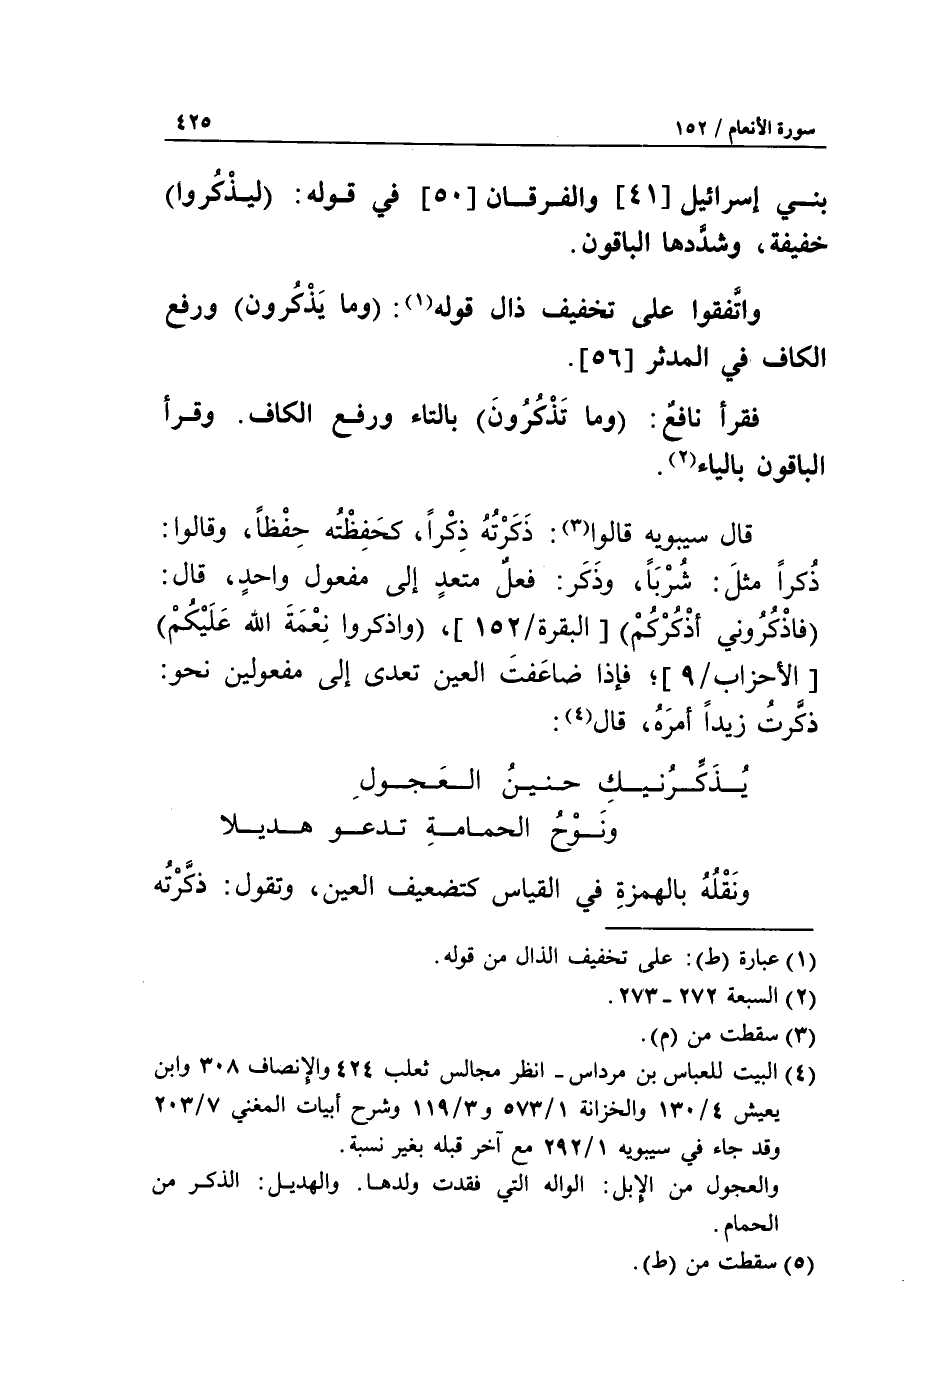 سورة الأنعام / ١٥٢
٤٢٥
بنـي إسرائيل [٤١] والفـرقـان [٥٠] في قـوله: (ليـذْكُروا)
خفيفة، وشدَّدها الباقون.
واتَّفقوا على تخفيف ذال قوله(١): (وما يَذْكُرون) ورفع
الكاف في المدثر [٥٦].
فقرأ نافعٌ: (وما تَذْكُرُونَ) بالتاء ورفـع الكاف. وقـرأ
الباقون بالياء(٢).
قال سيبويه قالوا(٣): ذَكَرْتُهُ ذِكْراً، كحَفِظْتُه حِفْظاً، وقالوا:
ذُكراً مثلَ: شُرْبَاً، وذَكَر: فعلٌ متعدٍ إلى مفعول واحدٍ، قال:
(فاذْكُرُوني أذْكُرْكُمْ) [البقرة/١٥٢]، (واذكروا نِعْمَةَ الله عَلَيْكُمْ)
[الأحزاب/٩]؛ فإذا ضاعَفتَ العين تعدى إلى مفعولين نحو:
ذكَّرتُ زيداً أمرَهُ، قال(٤):
يُـذَكِّـرُنيـكِ حـنيـنُ الـعَـجـولِ
ونَـوْحُ الحمـامـةِ تـدعـو هـديـلا
ونَقْلُهُ بالهمزةِ في القياس كتضعيف العين، وتقول: ذكَّرْتُه
(١) عبارة (ط): على تخفيف الذال من قوله.
(٢) السبعة ٢٧٢ ـ ٢٧٣.
(٣) سقطت من (م).
(٤) البيت للعباس بن مرداس ـ انظر مجالس ثعلب ٤٢٤ والإنصاف ٣٠٨ وابن
يعيش ١٣٠/٤ والخزانة ٥٧٣/١ و١١٩/٣ وشرح أبيات المغني ٢٠٣/٧
وقد جاء في سيبويه ٢٩٢/١ مع آخر قبله بغير نسبة.
والعجول من الإبل: الواله التي فقدت ولدهـا. والهديـل: الذكـر من
الحمام.
(٥) سقطت من (ط).